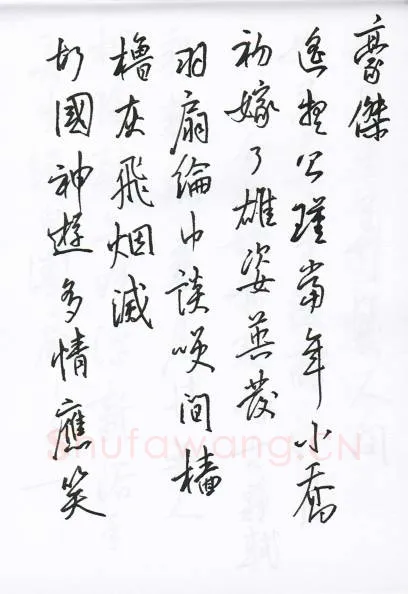 豪傑
遙想公瑾當年小喬
初嫁了雄姿英發
羽扇綸巾談笑間檣
櫓灰飛烟滅
故國神遊多情應笑
Shufawang.CN